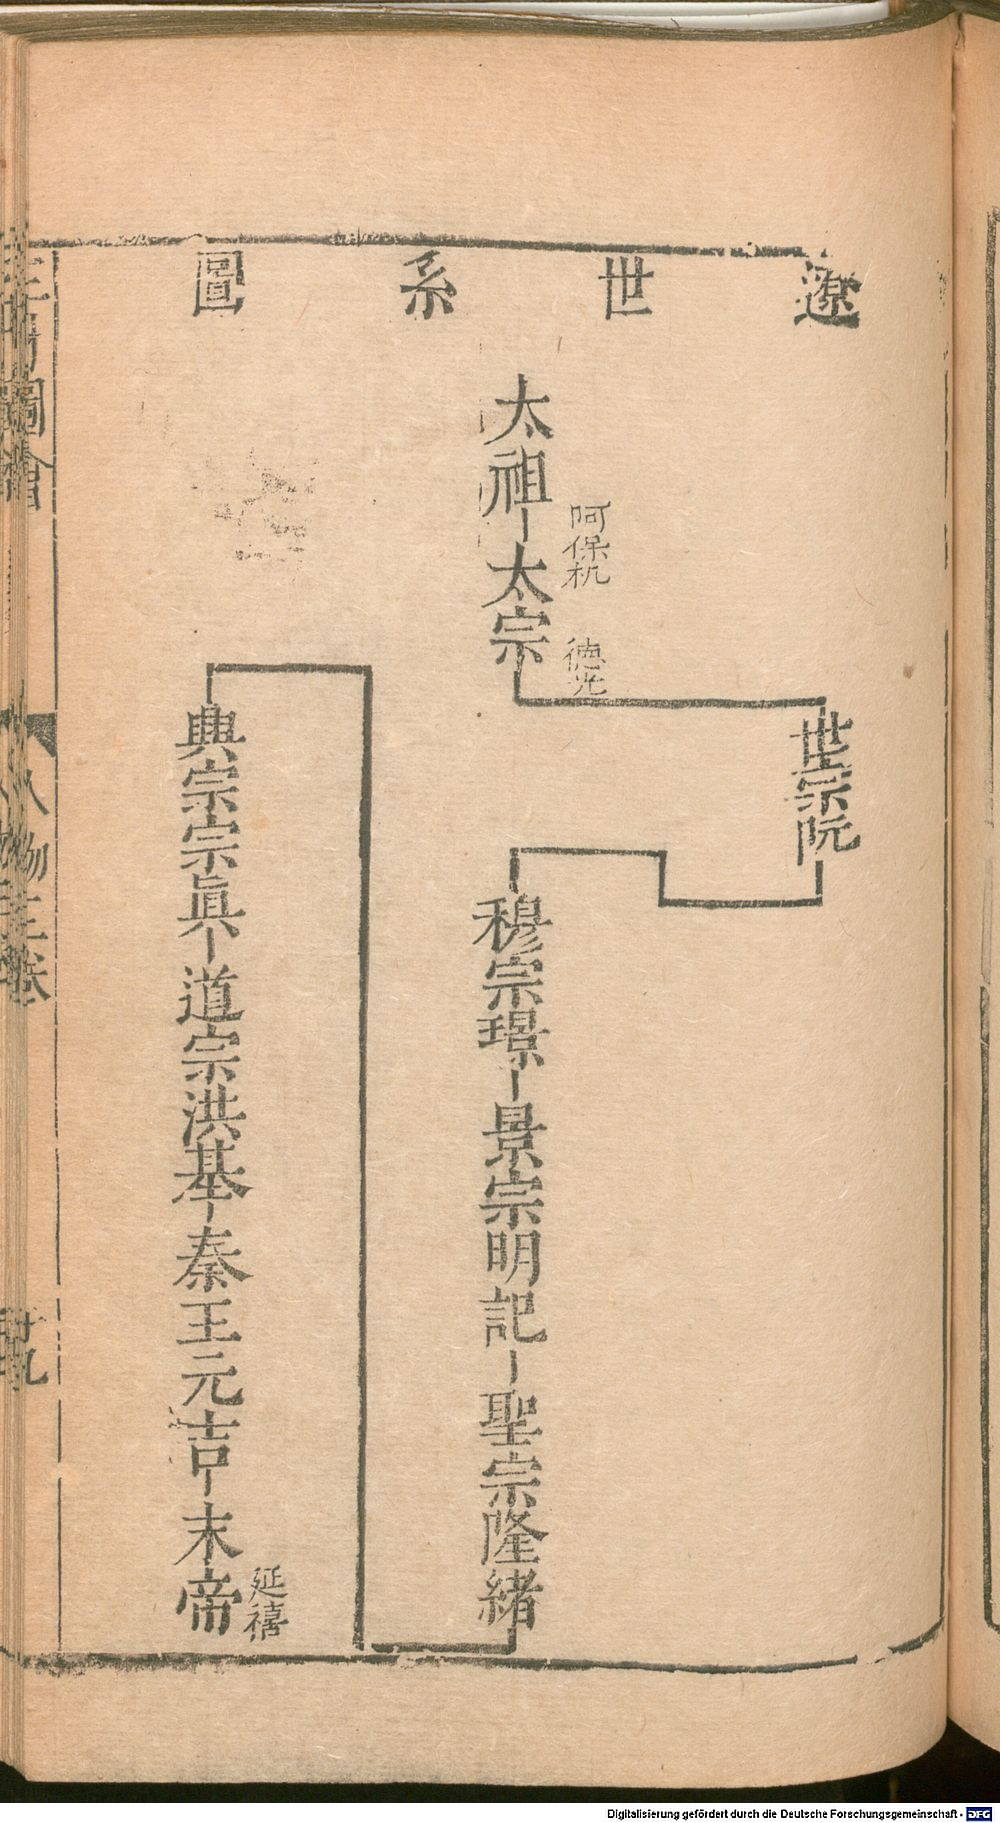 遼世系圖
太祖
阿保机
太宗
德光
世宗阮
穆宗璟
景宗明記
聖宗隆緒
興宗宗眞
道宗洪基
秦王元吉
末帝
延禧
人物三卷
廿九
Digitalisierung gefördert durch die Deutsche Forschungsgemeinschaft - DFG